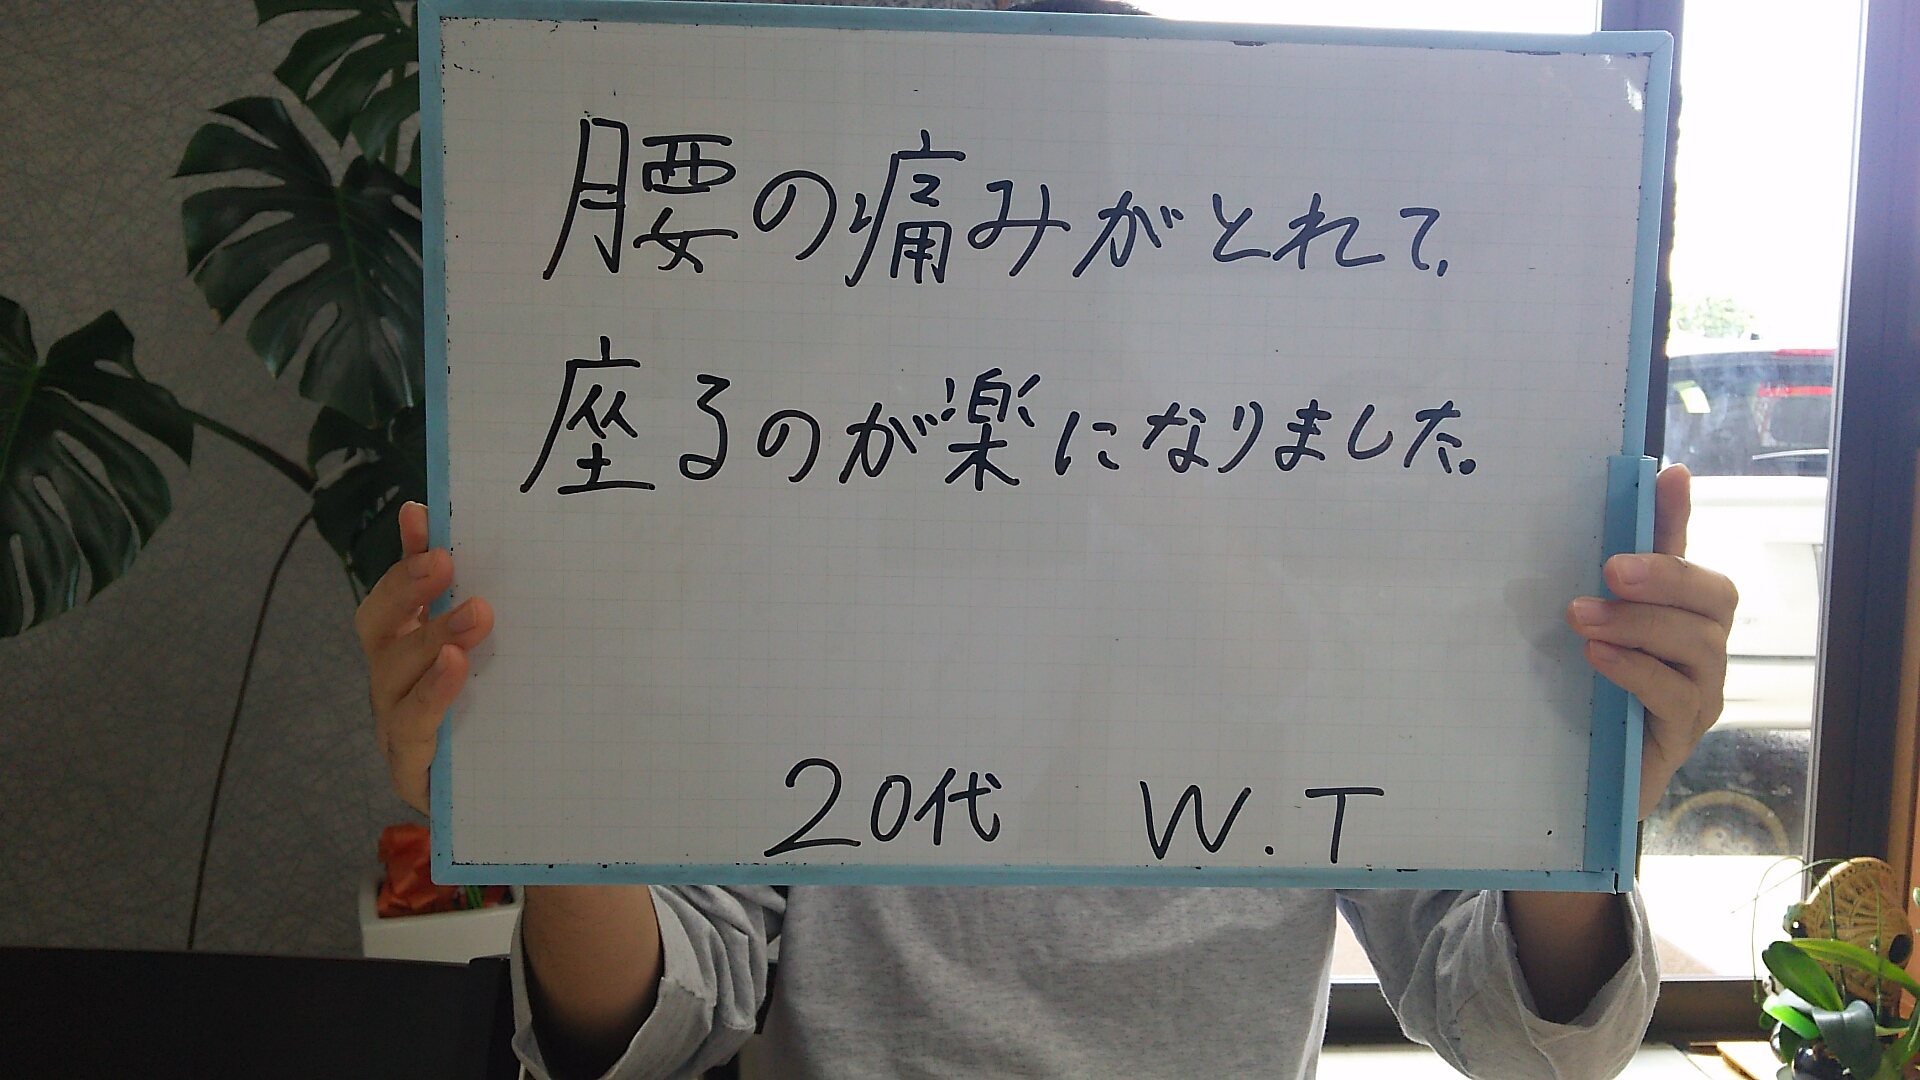 腰の痛みがとれて、
座るのが楽になりました。
20代 W.T